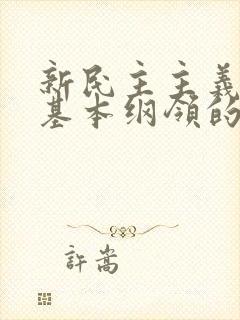 新民主主義
基本纲领的
許嵩